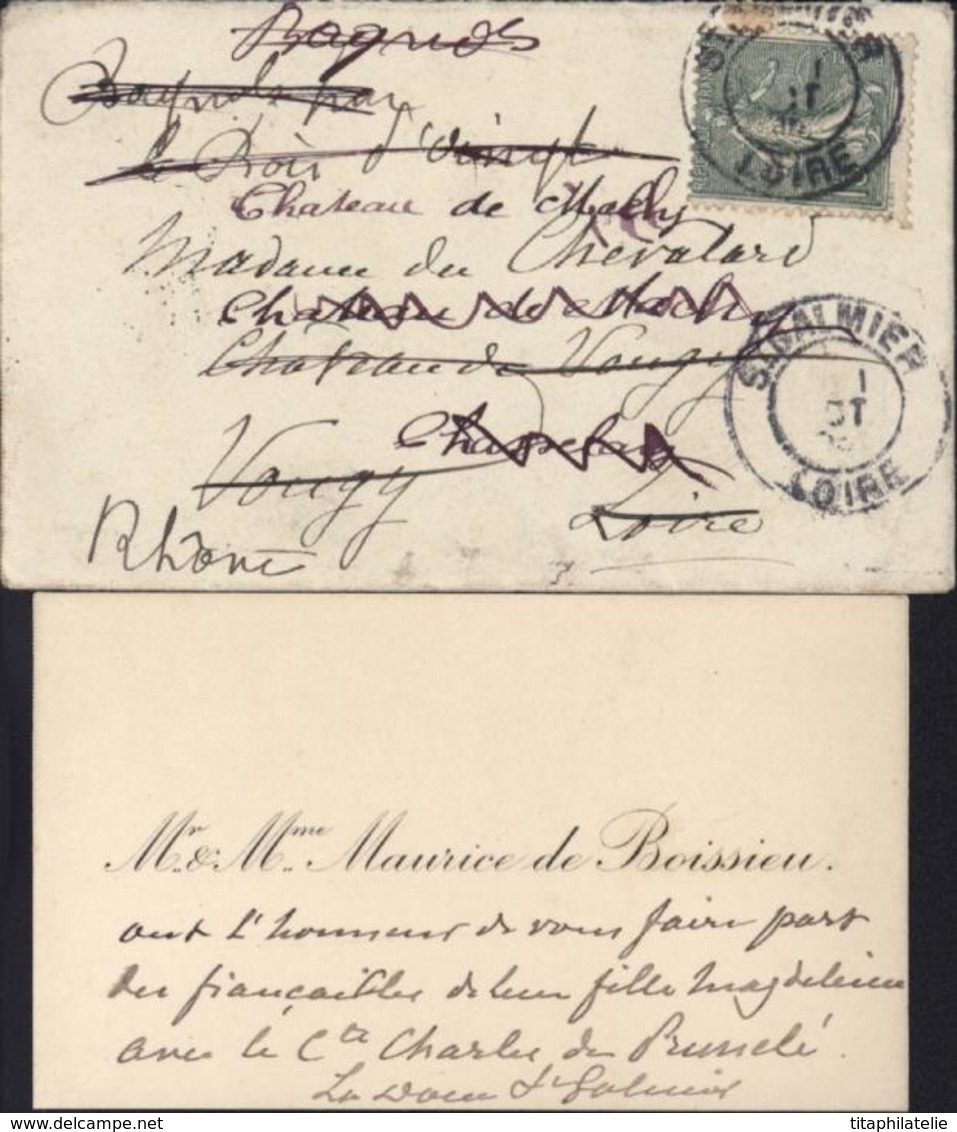 Bagnols
Bagnols par
le Bois d'Oingt
Chateau de Machy
Madame du Chevalard
Chateau de Machy
Chateau de Vougy
Chasselay
Vougy
Loire
Rhône
LOIRE
ST GALMIER
1
LOIRE
Mr & Mme Maurice de Boissieu.
ont l'honneur de vous faire part
des fiançailles de leur fille Magdeleine
avec le Cte Charles de Prunelé.
St Galmier
delcampe.net
titaphilatelie